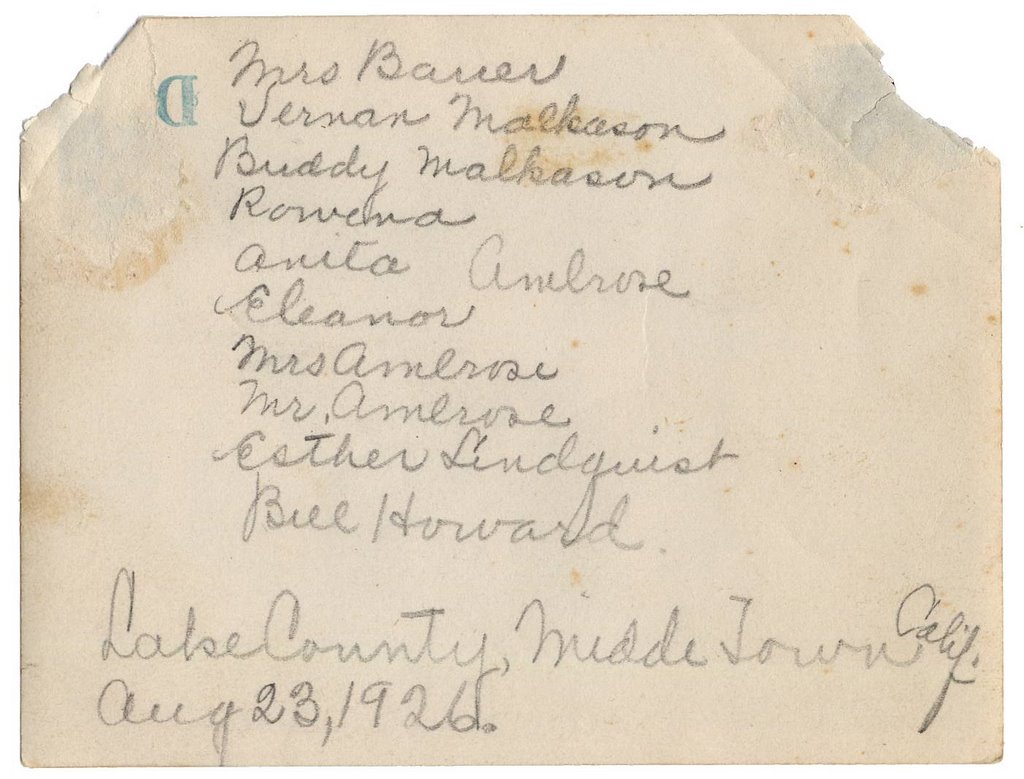 D
Mrs Bauer
Vernan Malkason
Buddy Malkason
Rowena
Anita Ambrose
Eleanor
Mrs Ambrose
Mr. Ambrose
Esther Lindquist
Bill Howard.
Lake County, Midde Town Calif.
Aug 23, 1926.